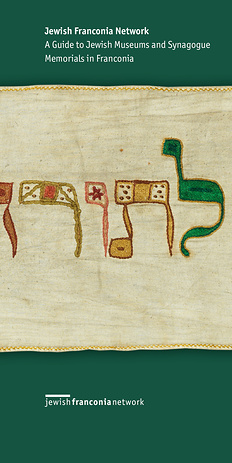 Jewish Franconia Network
A Guide to Jewish Museums and Synagogue
Memorials in Franconia
לתורה
jewishfranconianetwork